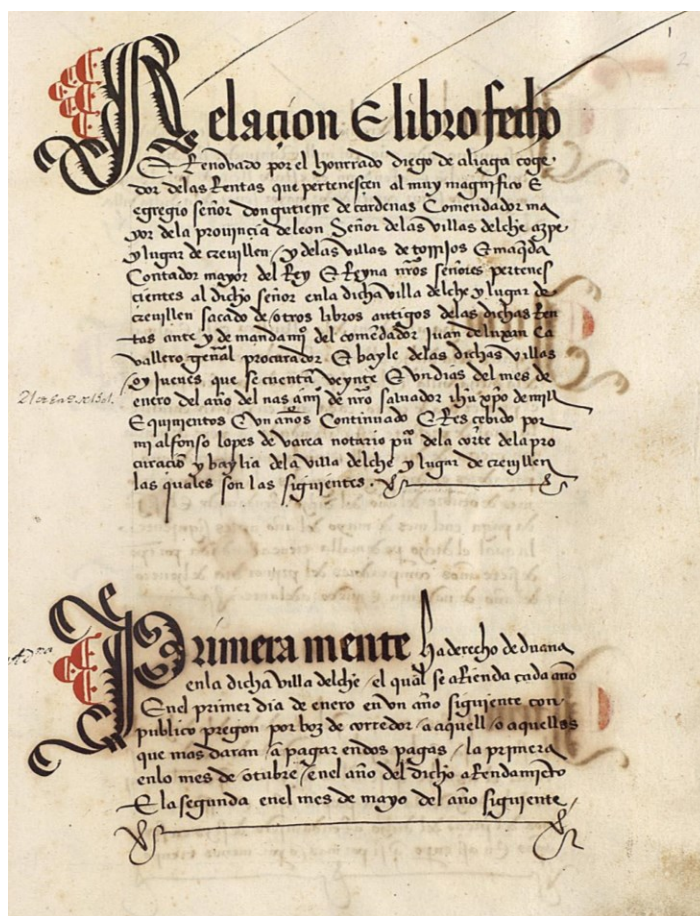 1
2
Relaçion E libro fecho
E Renovado por el honrrado diego de aliaga coge
dor delas Rentas que pertenesçen al muy magnifico E
egregio señor don gutierre de cardenas Comendador ma
yor dela provinçia de leon Señor delas villas delche azpe
y lugar de crevillen / y delas villas de torrijos E maqda
Contador mayor del Rey E Reyna nros señores pertenes
cientes al dicho señor enla dicha villa delche y lugar de
crevillen sacado de / otros libros antigos delas dichas Ren
tas ante y de mandamj° del comẽdador Juan de luxan Ca
vallero geñal procurador E bayle delas dichas villas
/ oy Jueues que se cuentã veynte E vn dias del mes de
enero del año del nasçamj° de nro salvador ihũ xpo de mill
E quinientos E vn años Continuado E Resçebido por
mi alfonso lopes de varea notario pũ dela corte dela pro
curaçiõ y baylia dela villa delche y lugar de crevillen
las quales son las siguientes.
21 enero 1501.
Primera mente ha derecho de duana
enla dicha villa delche / el qual se aRienda cada año
Enel primer dia de enero en vn año siguiente con
publico pregon por boz de corredor / a aquell / o aquellos
que mas daran / a pagar en dos pagas / la primera
enlo mes de otubre / enel año del dicho aRendamiẽto
E la segunda enel mes de mayo del año siguiente /